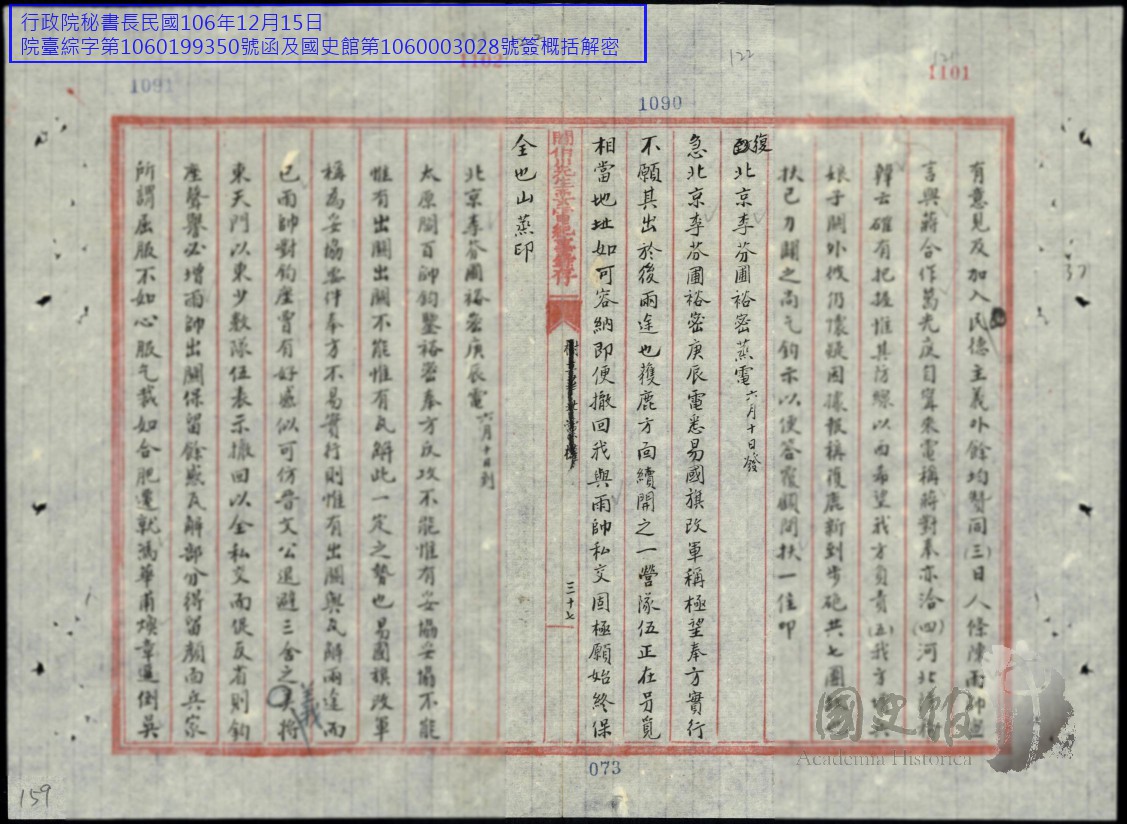 行政院秘書長民國106年12月15日
院臺綜字第1060199350號函及國史館第1060003028號簽概括解密
1091
1102
1090
122
1101
有意見及加入民德主義外餘均贊同(三)日人條陳雨帥
言與蔣合作葛光庭自寧來電稱蔣對奉亦洽(四)河北
韓云確有把握惟其防線以西希望我方負責(五)我方
娘子關外彼仍懷疑因據報稱獲鹿新到步砲共七團
扶已刀闢之尚乞鈞示以便答覆顧問扶一佳叩
復北京李芬圃裕密蒸電六月十日發
急北京李芬圃裕密庚辰電悉易國旗改軍稱極望奉方實行
不願其出於後兩途也獲鹿方面續開之一營隊伍正在另覓
相當地址如可容納即便撤回我與雨帥私交固極願始終保
全也山蒸印
閻伯川先生要電紀錄存
三十七
北京李芬圃裕密庚辰電六月十日到
太原閻百帥鈞鑒裕密奉方反攻不能惟有妥協妥協不能
惟有出關出關不能惟有瓦解此一定之勢也易國旗改軍
稱為妥協要件奉方不易實行則惟有出關與瓦解兩途而
已雨帥對鈞座曾有好感似可仿晉文公退避三舍之義將
東天門以東少數隊伍表示撤回以全私交而促反省則鈞
座聲譽必增雨帥出關保留餘感瓦解部分得留顏面兵家
所謂屈服不如心服乞裁如合肥遷就馮華甫煥章運倒吳
073
159
37
國史館
Academia Historica